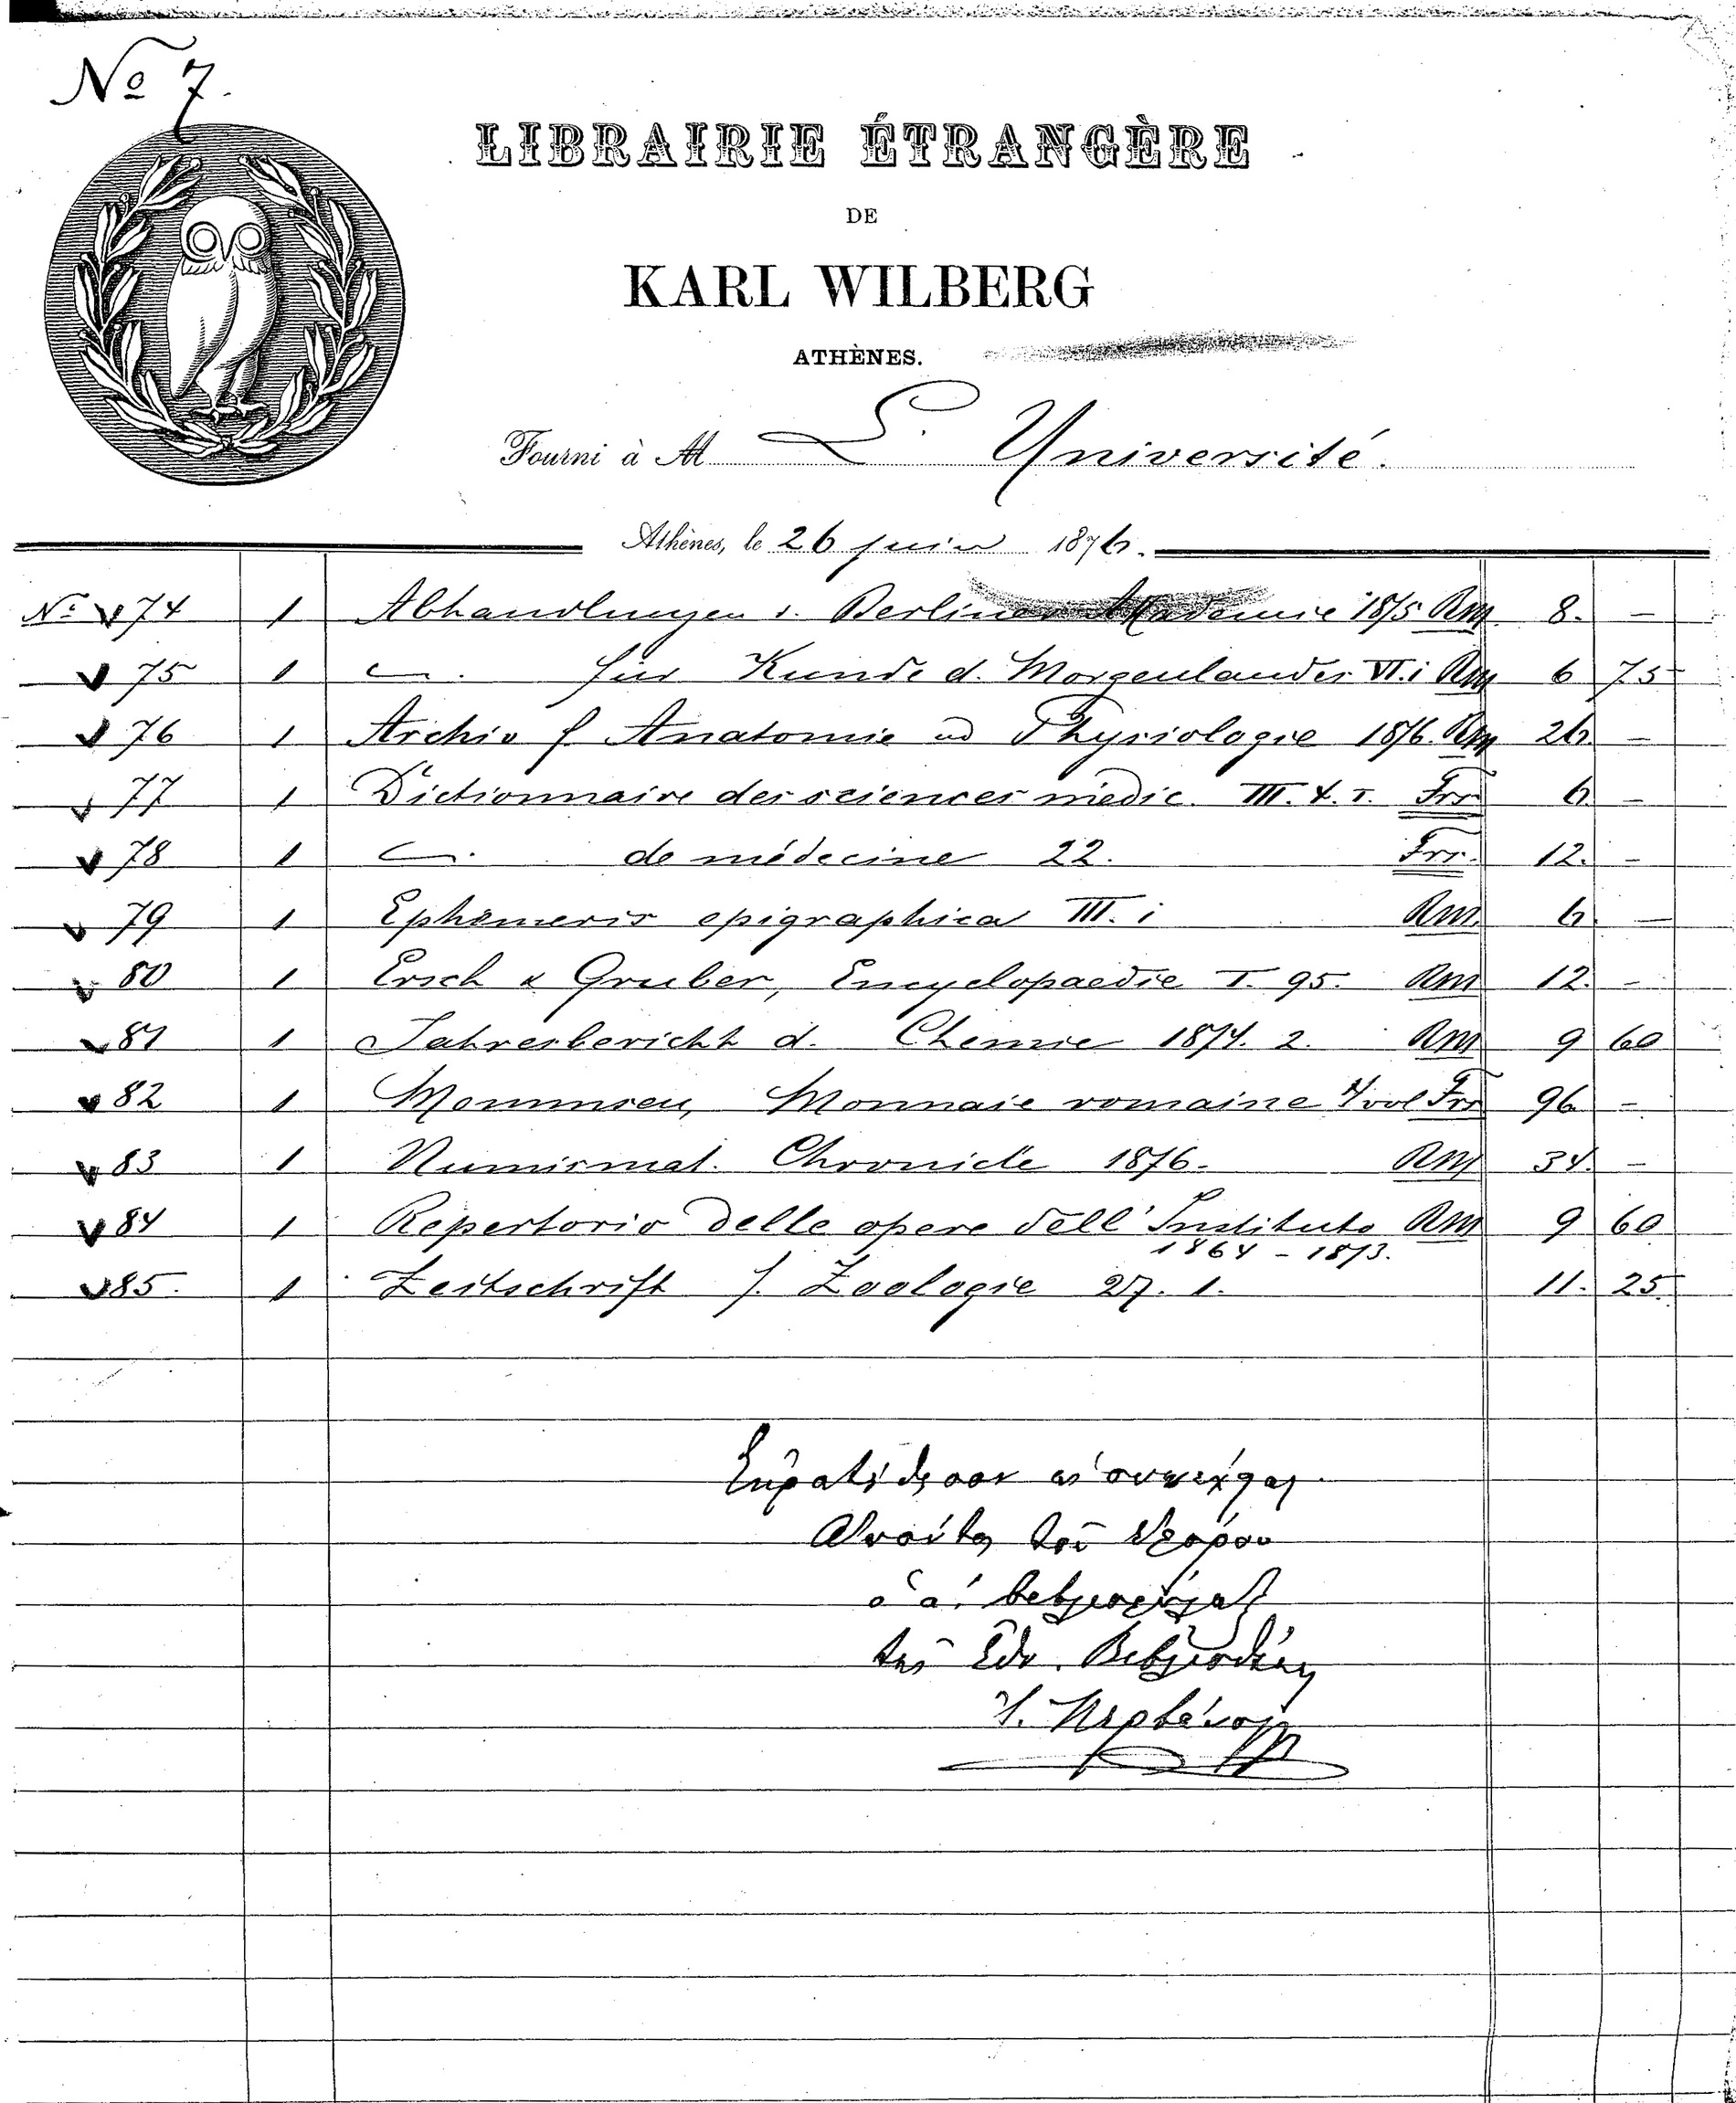 No 7.
LIBRAIRIE ÉTRANGÈRE
DE
KARL WILBERG
ATHÈNES.
Fourni à M L'Université.
Athènes, le 26 juin 1876.
No 74 1 Abhandlungen d. Berliner Akademie 1875 Rm 8. –
75 1 –. für Kunde d. Morgenlandes VI. i Rm 6 75
76 1 Archiv f. Anatomie ud Physiologie 1876. Rm 24. –
77 1 Dictionnaire des sciences médic. III. t. I. Frs 6 –
78 1 –. de médecine 22. Frs. 12. –
79 1 Ephemeris epigraphica III. i Rm. 6. –
80 1 Ersch & Gruber, Encyclopaedie I. 95. Rm 12. –
81 1 Jahresbericht d. Chemie 1874. 2. Rm 9 60
82 1 Mommsen, Monnaie romaine 4 vol Frs 96 –
83 1 Numismat. Chronicle 1876. Rm 34. –
84 1 Repertorio delle opere dell' Instituto Rm 9 60
1864 – 1873.
85. 1 Zeitschrift f. Zoologie 27. 1. 11. 25
τοῦ
ὁ
τῆς Ἐθν. Βιβλιοθήκης